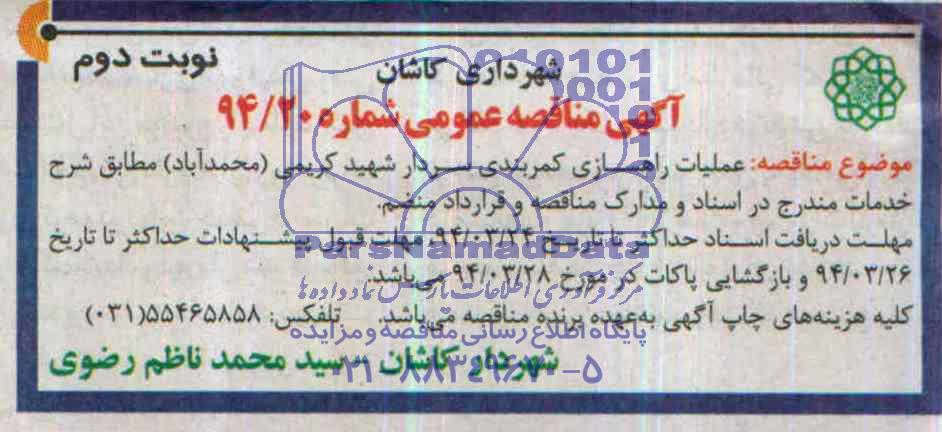 نوبت دوم
شهرداری کاشان
آگهی مناقصه عمومی شماره ۹۴/۲۰
موضوع مناقصه: عملیات راهسازی کمربندی سردار شهید کریمی (محمدآباد) مطابق شرح
خدمات مندرج در اسناد و مدارک مناقصه و قرارداد منضم.
مهلت دریافت اسناد حداکثر تا تاریخ ۹۴/۰۳/۲۴، مهلت قبول پیشنهادات حداکثر تا تاریخ
۹۴/۰۳/۲۶ و بازگشایی پاکات در مورخ ۹۴/۰۳/۲۸ می‌باشد.
کلیه هزینه‌های چاپ آگهی به‌عهده برنده مناقصه می‌باشد. تلفکس: ۵۵۴۶۵۸۵۸(۰۳۱)
شهردار کاشان - سید محمد ناظم رضوی
ParsNamadData
مرکز فرآوری اطلاعات پارس نماد داده ها
پایگاه اطلاع رسانی مناقصه و مزایده
۰۲۱-۸۸۳۴۹۶۷۰-۵